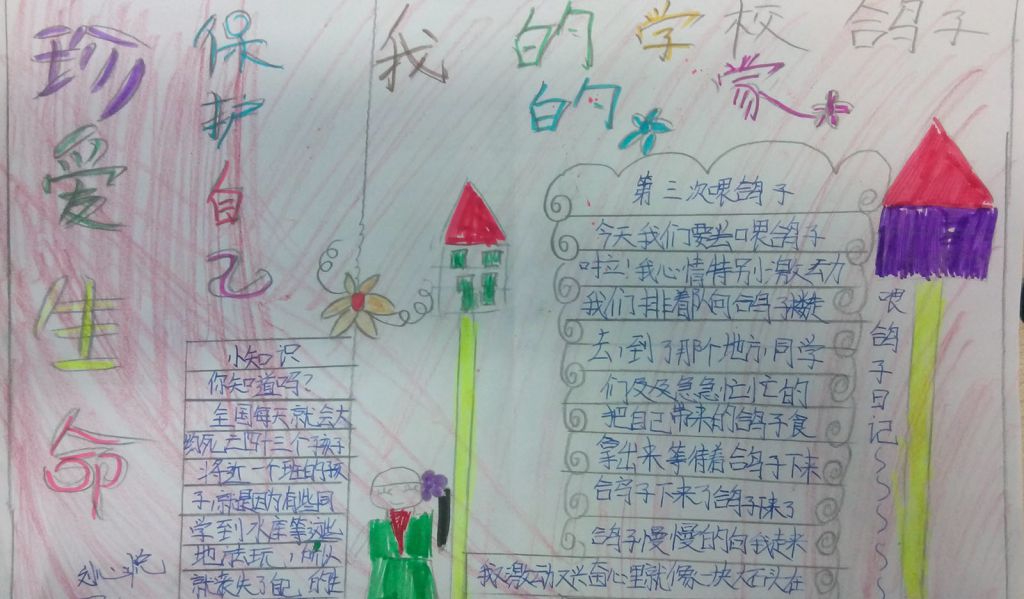 珍爱生命
保护自己
我的学校鸽子
的家
小知识
你知道吗？
全国每天就会大
约死亡四十三个孩子
将近一个班的孩
子，就是因为有些同
学到水库等这些
地方玩，所以
就丧失了自己的生
第三次喂鸽子
今天我们要去喂鸽子
时立！我心情特别激动
我们排着队向鸽子楼走
去，到了那个地方，同学
们及及急急忙忙的
把自己带来的鸽子食
拿出来等借着鸽子下来
鸽子下来了鸽子来了
鸽子慢慢的向我走来
我激动又兴奋心里就像一块大石头在
喂鸽子日记～～～～